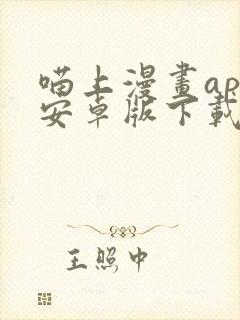 喵上漫畫ap
安卓版下載
王照中